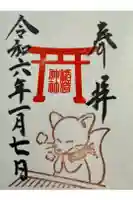 奉拝
令和六年一月七日